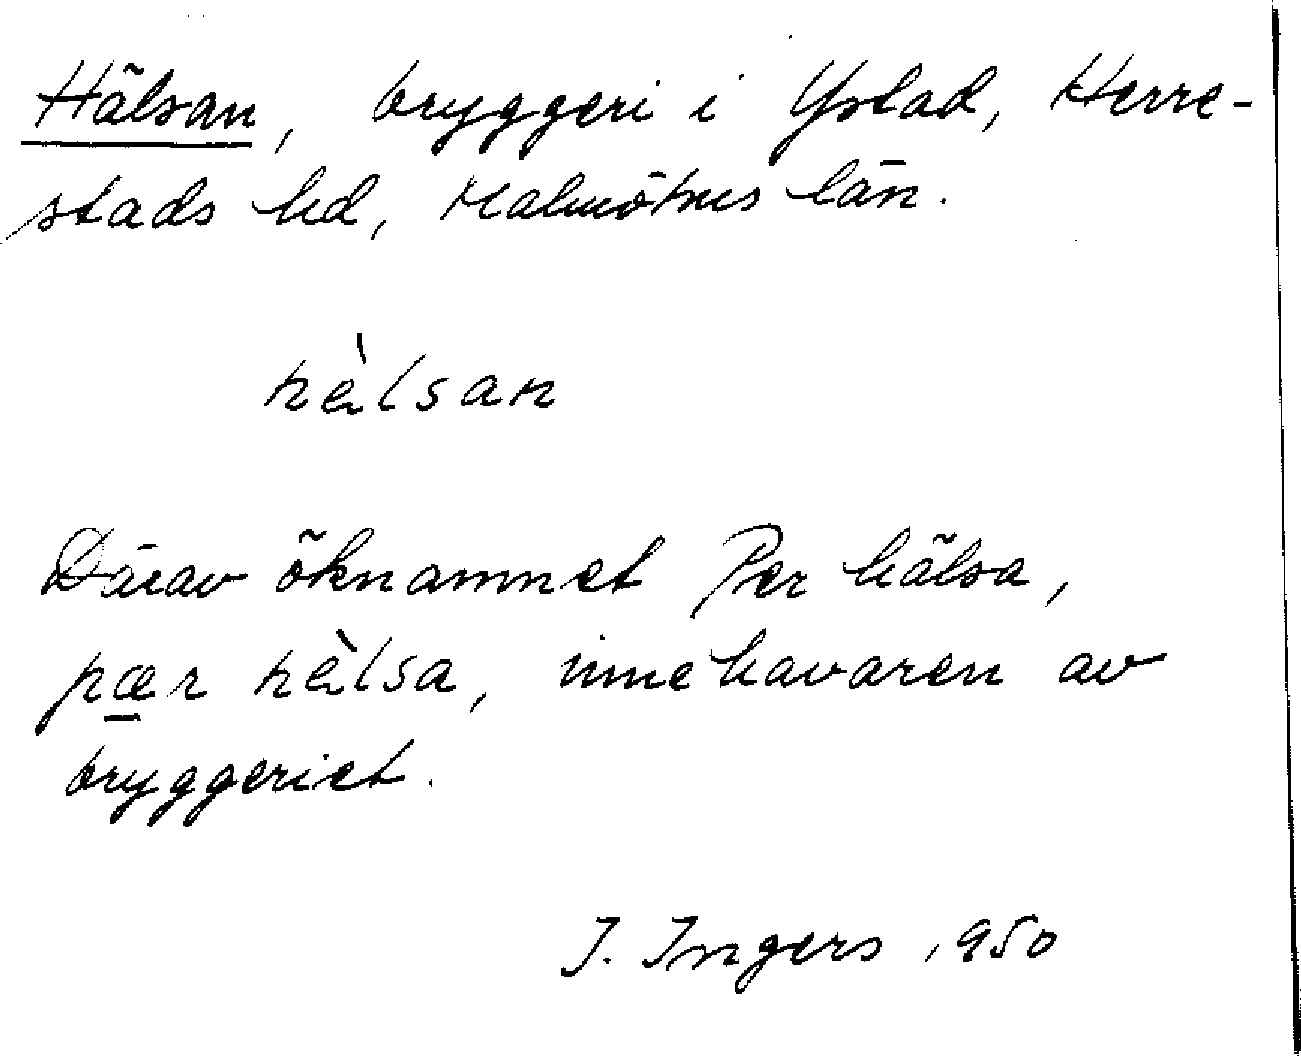 Hälsan, bryggeri i Ystad, Herre-
stads hd, Malmöhus län.
hȁlsan
Därav öknamnet Per hälsa,
pær hȁlsa, innehavaren av
bryggeriet.
I. Ingers 1950